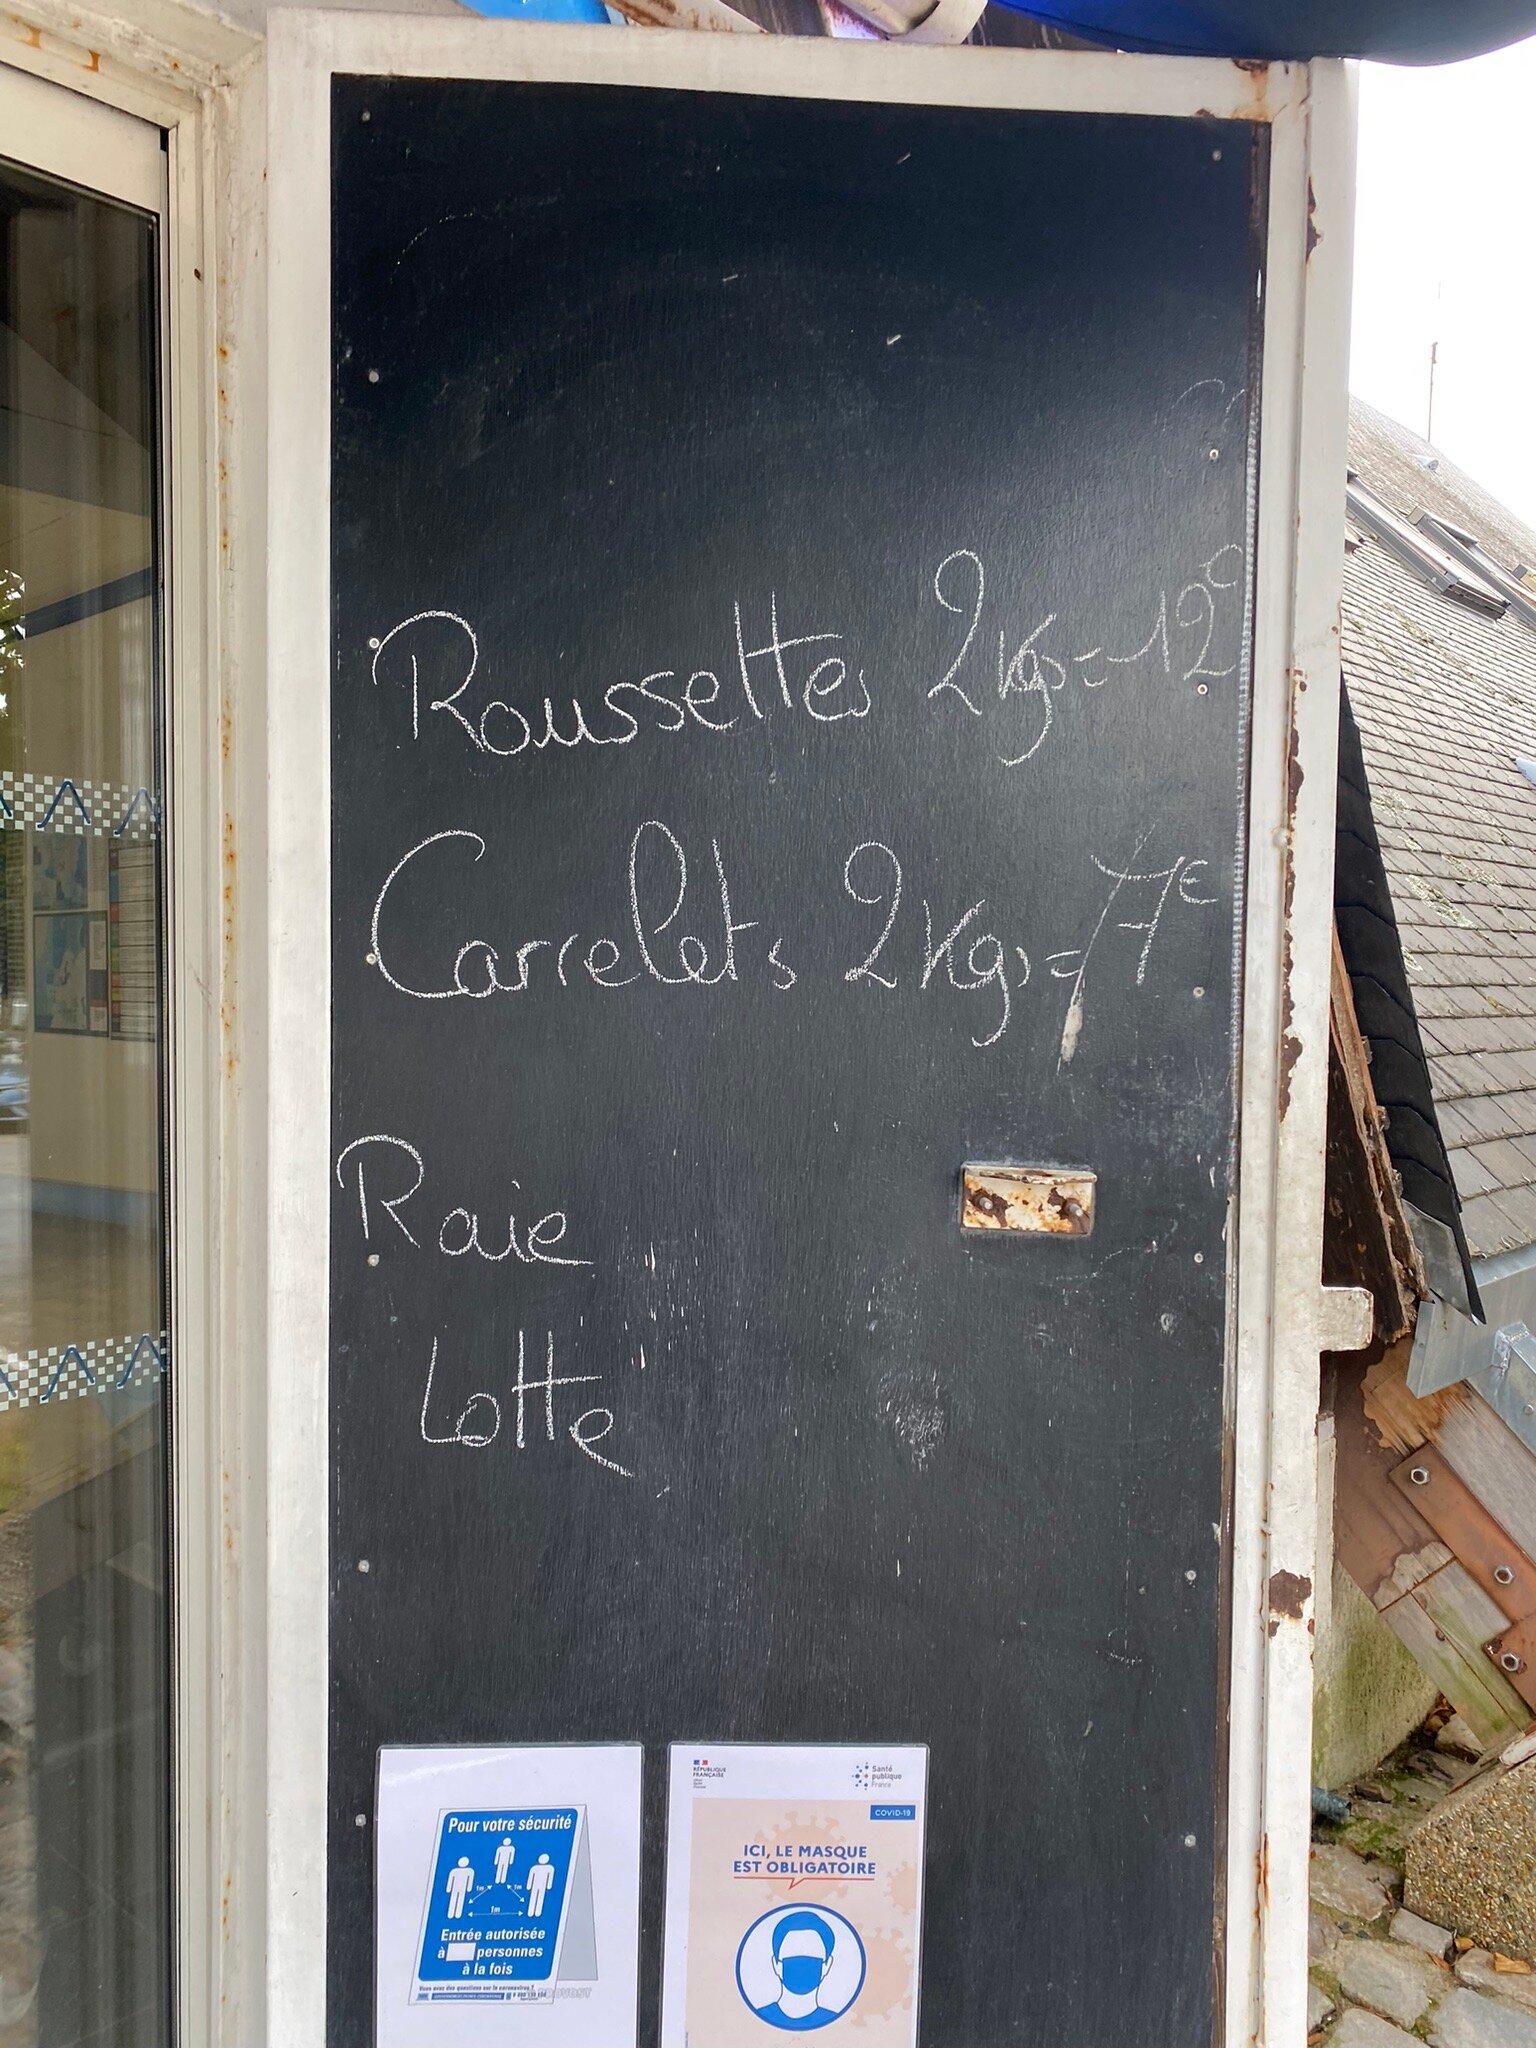 Roussettes 2kgs=12€
Carrelets 2kgs=7€
Raie
Lotte
Pour votre sécurité
1m 1m
1m
Entrée autorisée
à personnes
à la fois
Vous avez des questions sur le coronavirus ?
RÉPUBLIQUE
FRANÇAISE
Santé
publique
France
COVID-19
ICI, LE MASQUE
EST OBLIGATOIRE